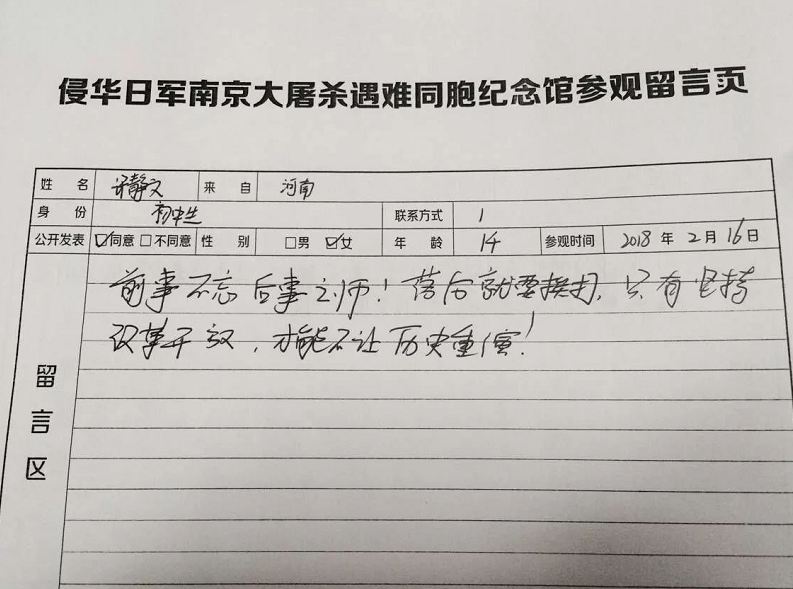 侵华日军南京大屠杀遇难同胞纪念馆参观留言页
姓 名 许静文 来 自 河南
身 份 初中生 联系方式 1
公开发表 ☑同意 □不同意 性 别 □男 ☑女 年 龄 14 参观时间 2018 年 2 月 16 日
留言区
前事不忘后事之师！落后就要挨打，只有坚持
改革开放，才能不让历史重演！